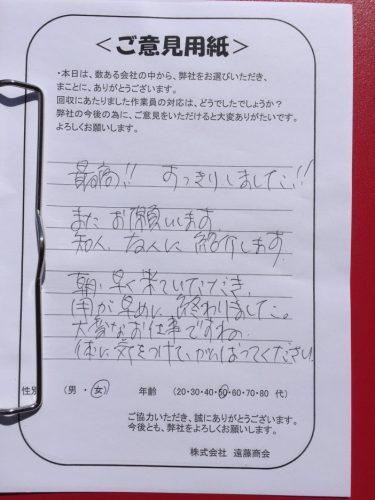 ＜ご意見用紙＞
・本日は、数ある会社の中から、弊社をお選びいただき、
まことに、ありがとうございます。
回収にあたりました作業員の対応は、どうでしたでしょうか？
弊社の今後の為に、ご意見をいただけると大変ありがたいです。
よろしくお願いします。
最高!! すっきりしました!!
また お願いします。
知人、友人に 紹介します。
朝、早く来ていただき、
用が早めに 終わりました。
大変なお仕事ですね。
体に気をつけて、がんばってください。
性別 （男・女） 年齢 （20・30・40・50・60・70・80 代）
ご協力いただき、誠にありがとうございます。
今後とも、弊社をよろしくお願いします。
株式会社 遠藤商会